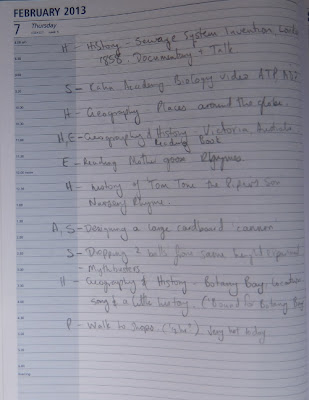 FEBRUARY 2013
7 Thursday
H - History - Sewage System Invention, London
1858. Documentary & Talk
S - Kahn Academy Biology Video ATP
H - Geography - Places around the globe.
H, E - Geography & History - Victoria
Reading Book
E - Reading Mother goose Rhymes
H - history of Tom Tom the Pipers Son
Nursery Rhyme.
A, S - Designing a large cardboard cannon
S - Dropping 2 balls from same height experiment
- Mythbusters.
H - Geography & History - Botany Bay location
song & a little history. ("Bound for Botany Bay
P - Walk to shops. Very hot today